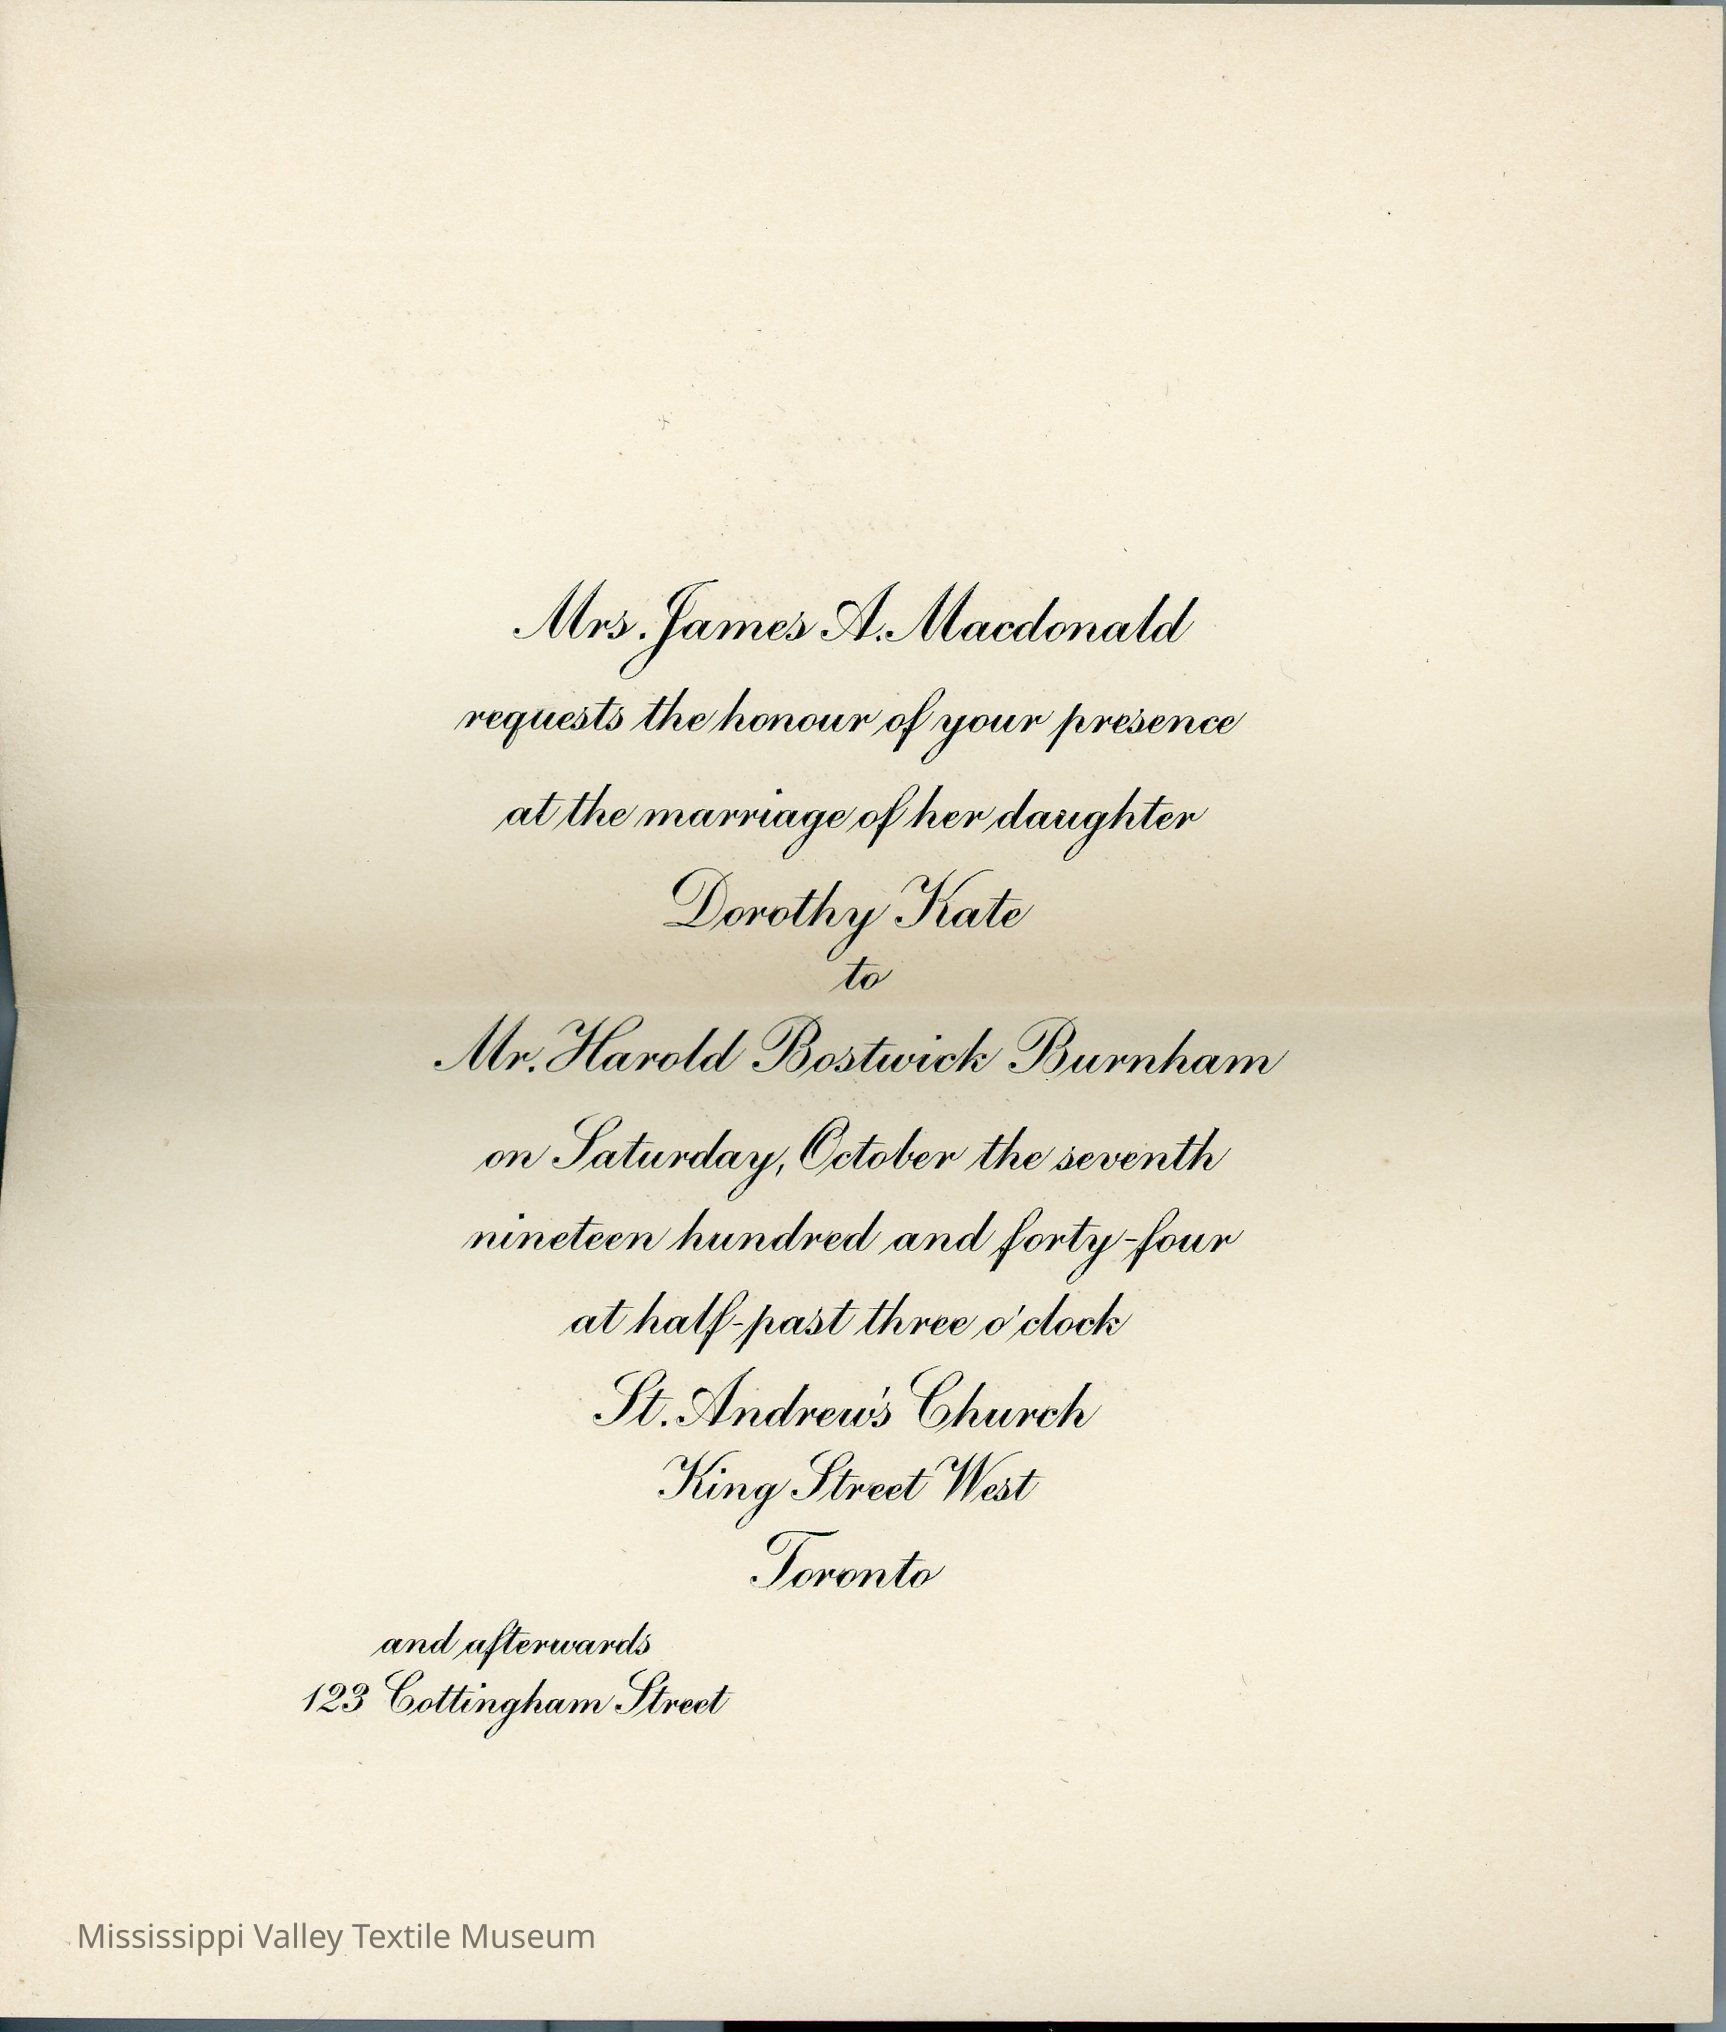 Mrs. James A. Macdonald
requests the honour of your presence
at the marriage of her daughter
Dorothy Kate
to
Mr. Harold Bostwick Burnham
on Saturday, October the seventh
nineteen hundred and forty-four
at half-past three o'clock
St. Andrew's Church
King Street West
Toronto
and afterwards
123 Cottingham Street
Mississippi Valley Textile Museum